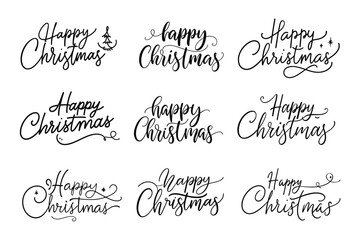 Happy
Christmas
happy
Christmas
Happy
Christmas
Happy
Christmas
happy
Christmas
Happy
Christmas
Happy
Christmas
Happy
Christmas
Happy
Christmas